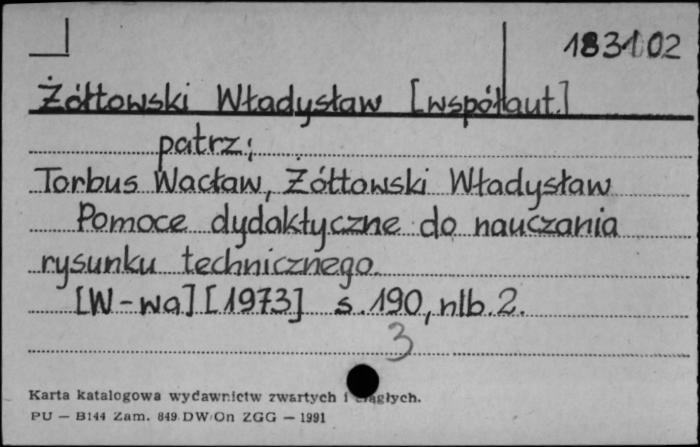 183102
Żółtowski Władysław [współaut.]
patrz:
Torbus Wacław, Żółtowski Władysław
Pomoce dydaktyczne do nauczania
rysunku technicznego.
[W-wa] [1973] s. 190, nlb. 2.
3
Karta katalogowa wydawnictw zwartych i ciągłych.
PU — B144 Zam. 849 DW/On ZGG — 1991